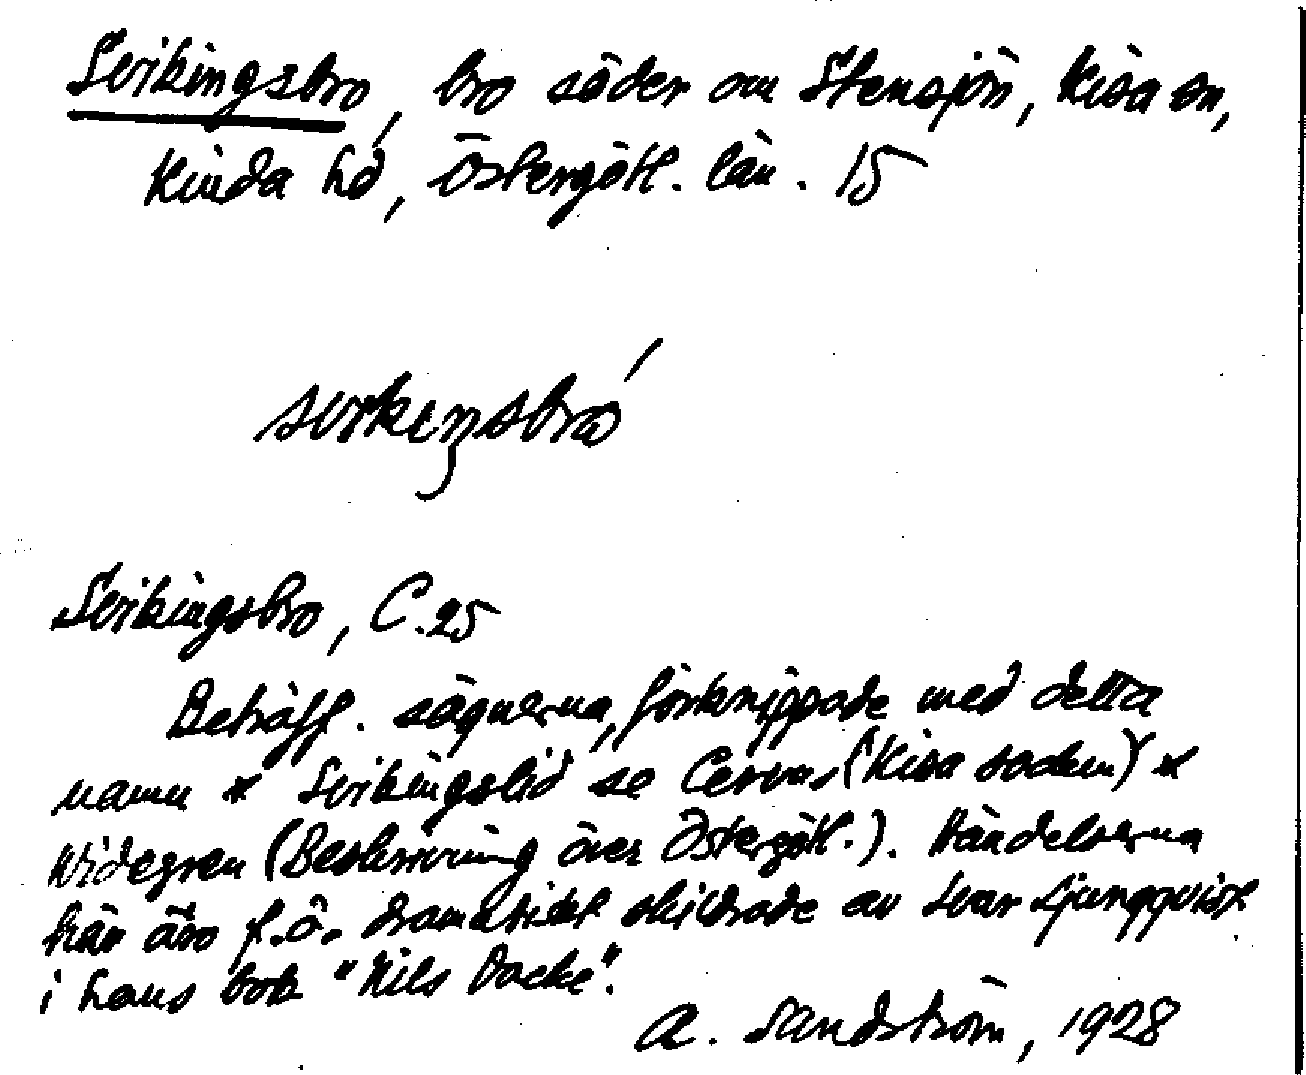 Svikingsbro, bro söder om Stensjön, Kisa sn,
Kinda hd, Östergötl. län. 15
Svikingsbro, C. 25
Beträff. sägnerna, förknippade med detta
namn * Svikingslid se Cervus (Kisa socken) *
Widegren (Beskrivning över Östergötl.). Händelserna
här äro f.ö. dramatiskt skildrade av Ivar Ljungqvist
i hans bok "Nils Dacke".
A. Sandström, 1928